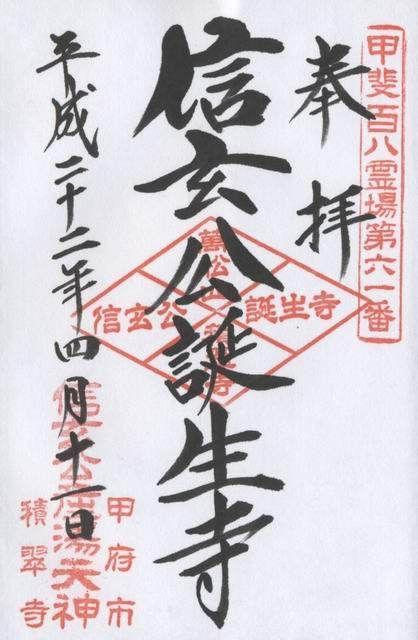 甲斐百八霊場第六一番
奉拝
信玄公誕生寺
萬松山
信玄公
誕生寺
積翠寺
平成二十二年四月十一日
信玄公産湯天神
甲府市
積翠寺